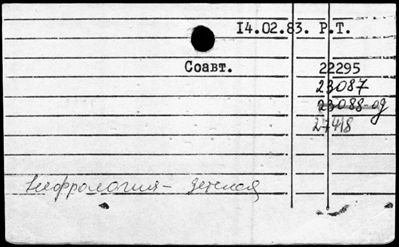 14.02.83. Р.Т.
Соавт. 22295
23087
23088-од
27418
нефрология - детская